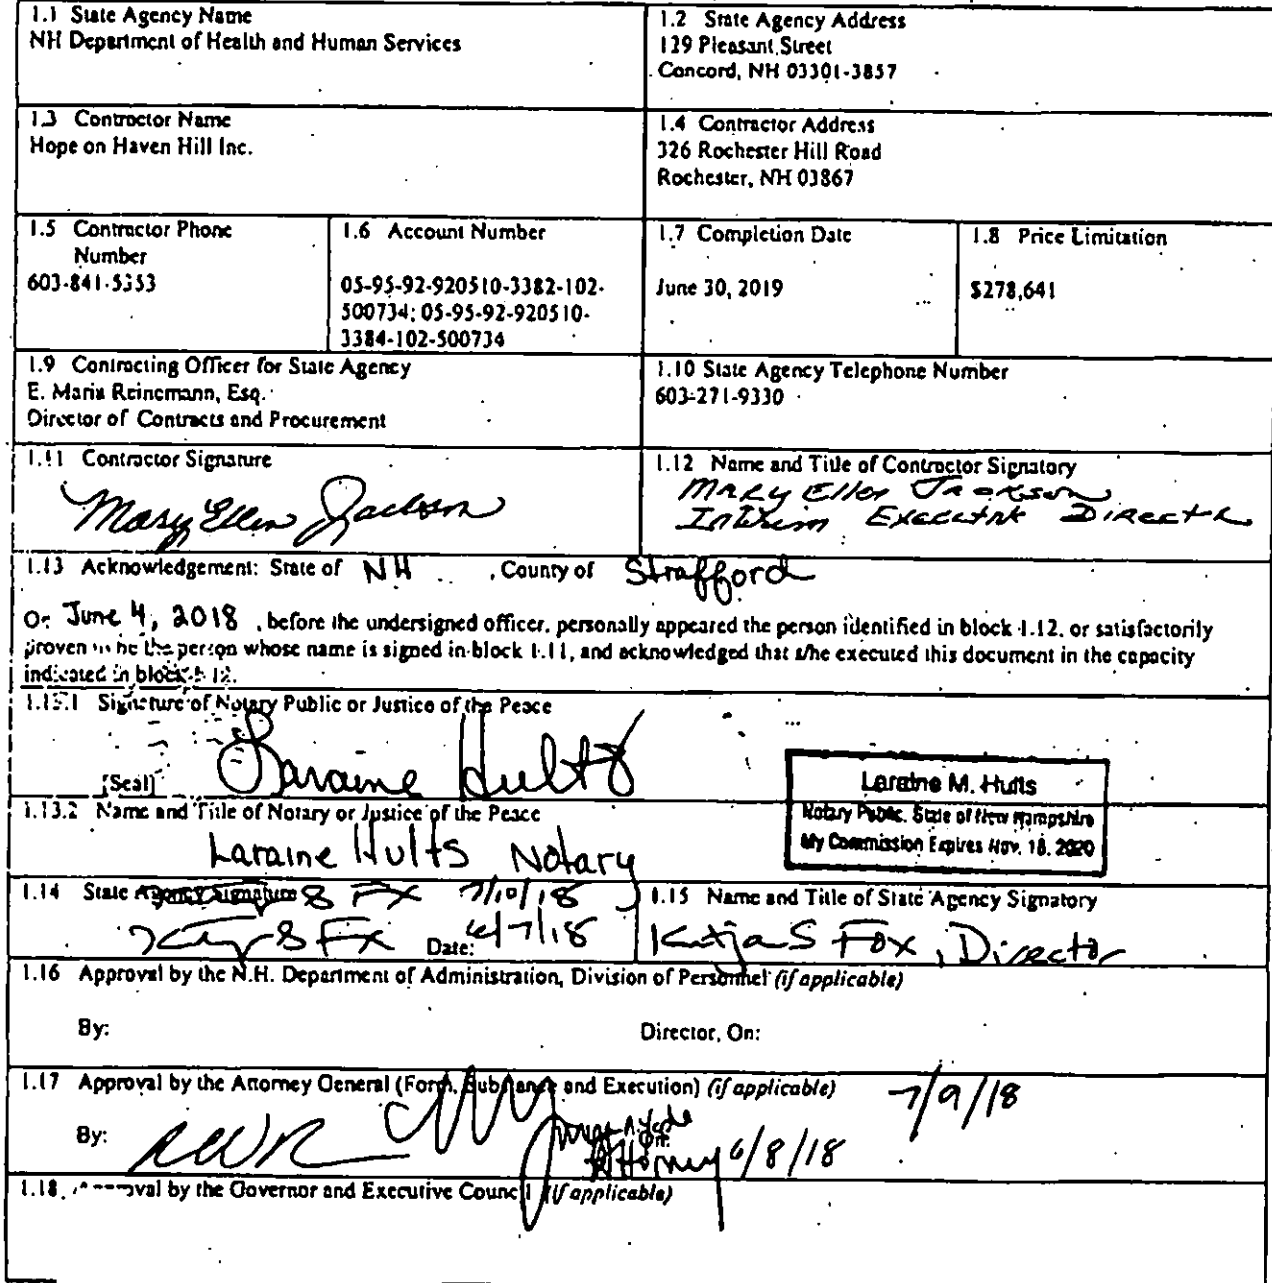 1.1 State Agency Name
NH Department of Health and Human Services
1.2 State Agency Address
129 Pleasant Street
Concord, NH 03301-3857
1.3 Contractor Name
Hope on Haven Hill Inc.
1.4 Contractor Address
326 Rochester Hill Road
Rochester, NH 03867
1.5 Contractor Phone
Number
603-841-5353
1.6 Account Number
05-95-92-920510-3382-102-
500734; 05-95-92-920510-
3384-102-500734
1.7 Completion Date
June 30, 2019
1.8 Price Limitation
$278,641
1.9 Contracting Officer for State Agency
E. Maria Reinemann, Esq.
Director of Contracts and Procurement
1.10 State Agency Telephone Number
603-271-9330
1.11 Contractor Signature
Mary Ellen Jackson
1.12 Name and Title of Contractor Signatory
Mary Ellen Jackson
Interim Executive Director
1.13 Acknowledgement: State of NH , County of Strafford
On June 4, 2018 , before the undersigned officer, personally appeared the person identified in block 1.12, or satisfactorily
proven to be the person whose name is signed in block 1.11, and acknowledged that s/he executed this document in the capacity
indicated in block 1.12.
1.13.1 Signature of Notary Public or Justice of the Peace
Laraine Hults
[Seal]
Laraine M. Hults
Notary Public, State of New Hampshire
My Commission Expires Nov. 18, 2020
1.13.2 Name and Title of Notary or Justice of the Peace
Laraine Hults Notary
1.14 State Agency Signature 7/10/18
Date: 6/7/18
1.15 Name and Title of State Agency Signatory
Katja S Fox, Director
1.16 Approval by the N.H. Department of Administration, Division of Personnel (if applicable)
By: Director, On:
1.17 Approval by the Attorney General (Form, Substance and Execution) (if applicable) 7/9/18
By: Attorney 6/8/18
1.18 Approval by the Governor and Executive Council (if applicable)